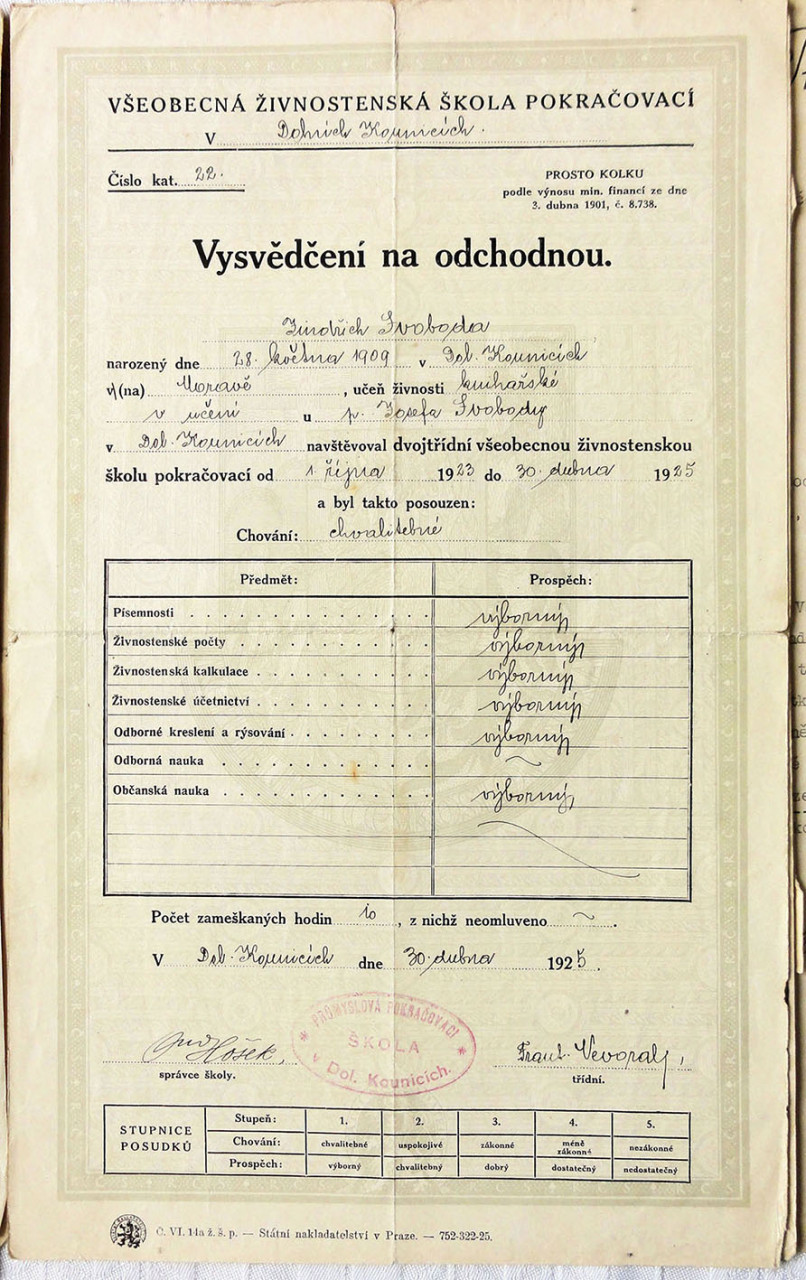 VŠEOBECNÁ ŽIVNOSTENSKÁ ŠKOLA POKRAČOVACÍ
V Dolních Kounicích.
Číslo kat. 22.
PROSTO KOLKU
podle výnosu min. financí ze dne
3. dubna 1901, č. 8.738.
Vysvědčení na odchodnou.
Jindřich Svoboda
narozený dne 28. května 1909 v Dol. Kounicích
v (na) Moravě, učeň živnosti kuchařské
v učení u p. Josefa Svobody
v Dol. Kounicích navštěvoval dvojtřídní všeobecnou živnostenskou
školu pokračovací od 1 října 1923 do 30. dubna 1925
a byl takto posouzen:
Chování: chvalitebné
Předmět: Prospěch:
Písemnosti výborný
Živnostenské počty výborný
Živnostenská kalkulace výborný
Živnostenské účetnictví výborný
Odborné kreslení a rýsování výborný
Odborná nauka ~
Občanská nauka výborný
Počet zameškaných hodin 10, z nichž neomluveno ~.
V Dol. Kounicích dne 30. dubna 1925.
PRŮMYSLOVÁ POKRAČOVACÍ
ŠKOLA
v Dol. Kounicích.
Hošek,
správce školy.
Frant. Nevoral,
třídní.
STUPNICE POSUDKŮ
Stupeň: 1. 2. 3. 4. 5.
Chování: chvalitebné uspokojivé zákonné méně zákonné nezákonné
Prospěch: výborný chvalitebný dobrý dostatečný nedostatečný
Č. VI. 14a ž. š. p. — Státní nakladatelství v Praze. — 752-322-25.